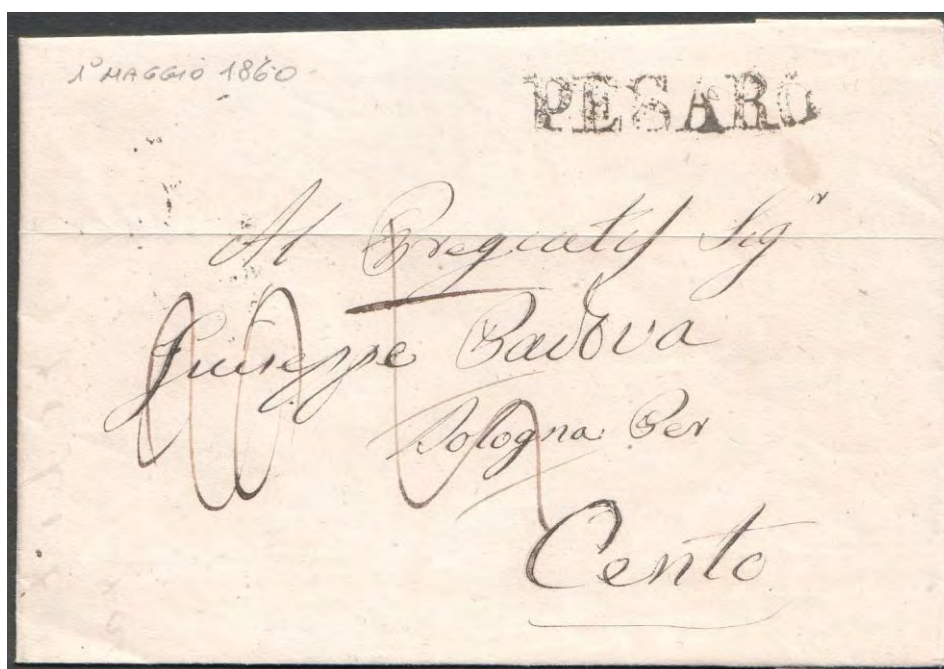 1° MAGGIO 1860
PESARO
Al Pregiatis Sigr
Giuseppe Padova
Bologna Per
Cento